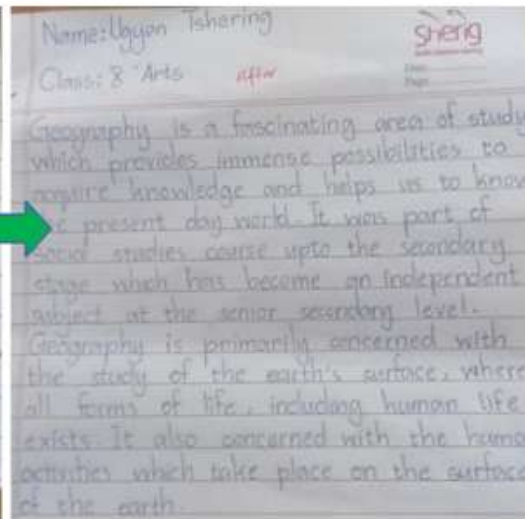 Name: Ugyen Tshering
Sherig
Class: 8 Arts after
Geography is a fascinating area of study
which provides immense possibilities to
acquire knowledge and helps us to know
present day world. It was part of
social studies course upto the secondary
stage which has become an independent
subject at the senior secondary level.
Geography is primarily concerned with
the study of the earth's surface, where
all forms of life, including human life
exists. It also concerned with the huma
activities which take place on the surface
of the earth.